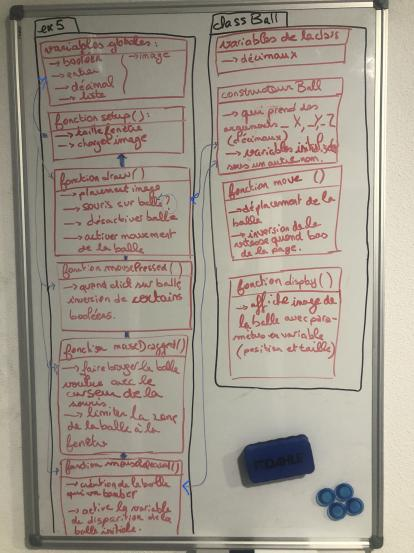 ex 5
variables globales :
→ booléen
→ entier
→ décimal
→ liste
→ image
fonction setup() :
→ taille fenêtre
→ charger image
fonction draw()
→ placement image
→ souris sur balle ?
→ désactiver balle
→ activer mouvement
de la balle
fonction mousePressed()
→ quand click sur balle
inversion de certains
booléens.
fonction mouseDragged()
→ faire bouger la balle
voulue avec le
curseur de la
souris.
→ limiter la zone
de la balle à la
fenêtre
fonction mouseReleased()
→ création de la balle
qui va tomber
→ active la variable
de disparition de la
balle initiale.
class Ball
variables de la class
→ décimaux
constructeur Ball
→ qui prend des
arguments — X, -Y, -Z
(décimaux)
→ variables initialisées
sous un autre nom.
fonction move ()
→ déplacement de la
balle
→ inversion de la
vitesse quand bas
de la page.
fonction display()
→ affiche image de
la balle avec para-
mètres en variable
(position et taille)
DAHLE